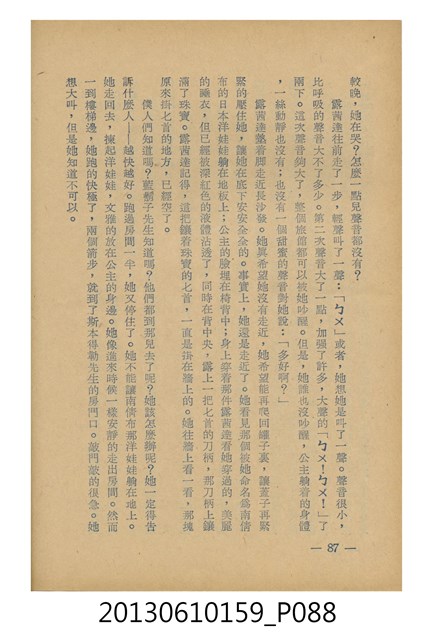 較晚，她在哭？怎麼一點兒聲音都沒有？
露茜達往前走了一步，輕聲叫了一聲：「ㄅㄨ」或者，她想她是叫了一聲。聲音很小，
比呼吸的聲音大不了多少。第二次聲音大了一點，加強了許多，大聲的「ㄅㄨ！ㄅㄨ！」了
兩下。這次聲音夠大了，整個旅館都可以被她吵醒。但是，她誰也沒吵醒，公主躺着的身體
，一絲動靜也沒有；也沒有一個甜蜜的聲音對她說：「多好啊？」
露茜達墊着脚走近長沙發。她眞希望她沒有走近，她希望能再爬回罐子裏，讓蓋子再緊
緊的壓住她，讓她在底下安安全全的。事實上，她還是走近了。她看見那個被她命名爲南倩
布的日本洋娃娃躺在地板上；公主的臉埋在椅背中；身上穿着那件露茜達看她穿過的，美麗
的睡衣，但已經被深紅色的液體沾透了，同時在背中央，露上一把匕首的刀柄，那刀柄上鑲
滿了珠寶。露茜達記得，這把鑲着珠寶的匕首，一直是掛在牆上的。她往牆上看一看，那塊
原來掛匕首的地方，已經空了。
僕人們知道嗎？藍鬍子先生知道嗎？他們都到那兒去了呢？她該怎麼辦呢？她一定得告
訴什麼人——越快越好。跑過房間一半，她又停住了。她不能讓南倩布那洋娃娃躺在地上。
她走回去，揀起洋娃娃，文雅的放在公主的身邊。她像進來時候一樣安靜的走出房間。然而
一到樓梯邊，她跑的快極了，兩個箭步，就到了斯本得勒先生的房門口。敲門敲的很急。她
想大叫，但是她知道不可以。
— 87 —
20130610159_P088